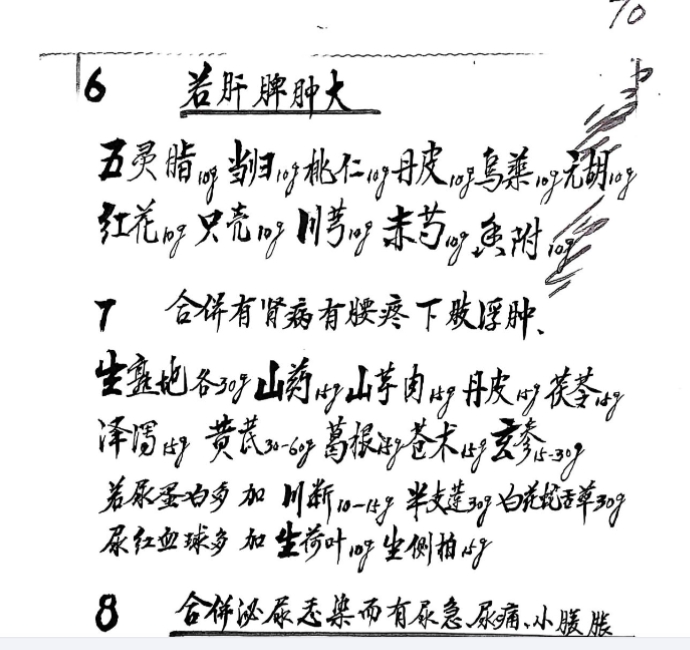 70
6 若肝脾肿大
五灵脂10g 当归10g 桃仁10g 丹皮10g 乌药10g 元胡10g
红花10g 只壳10g 川芎10g 赤芍10g 香附10g
7 合併有肾病有腰疼下肢浮肿、
生熟地各30g 山药15g 山芋肉15g 丹皮15g 茯苓15g
泽泻15g 黄芪30-60g 葛根15g 苍术15g 玄参15-30g
若尿蛋白多加 川断10-15g 半支莲30g 白花蛇舌草30g
尿红血球多加 生荷叶10g 生侧柏15g
8 合併泌尿感染而有尿急、尿痛、小腹胀